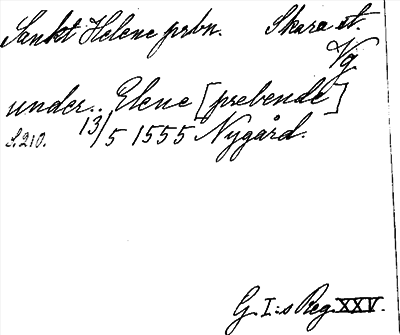 Sankt Helene prbn. Skara st.
Vg
under.. Elene [prebende]
S.210. 13/5 1555 Nygård.
G. I:s Reg. XXV.